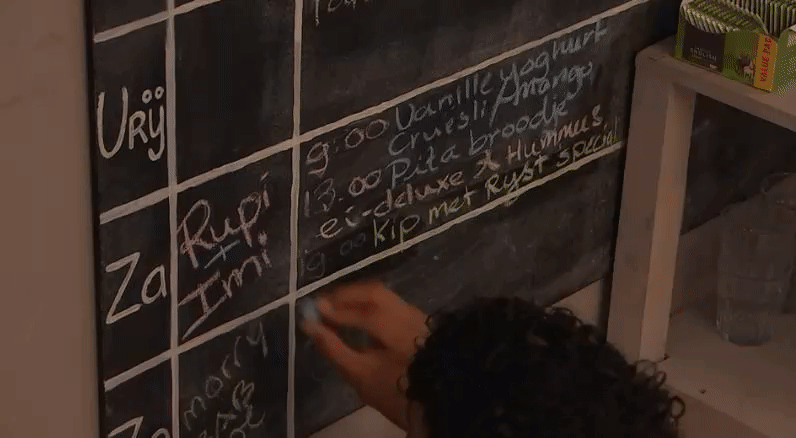 Vrij
9:00 Vanille yoghurt
Cruesli/mango
13.00 Pita broodje
ei-deluxe & Hummus
19 00 Kip met Ryst special
Za
Rupi
+
Imi
Zo
morry
VALUE PACK